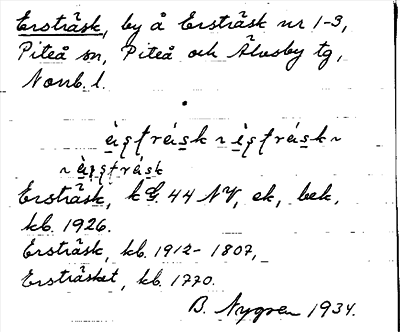 Ersträsk, by å Ersträsk nr 1-3,
Piteå sn, Piteå och Älvsby tg,
Norrb. l.
Ersträsk, k 44 NV, ek, bek,
kb. 1926.
Ersträsk, kb. 1912-1807,
Ersträsket, kb. 1770.
B. Nygren 1934.